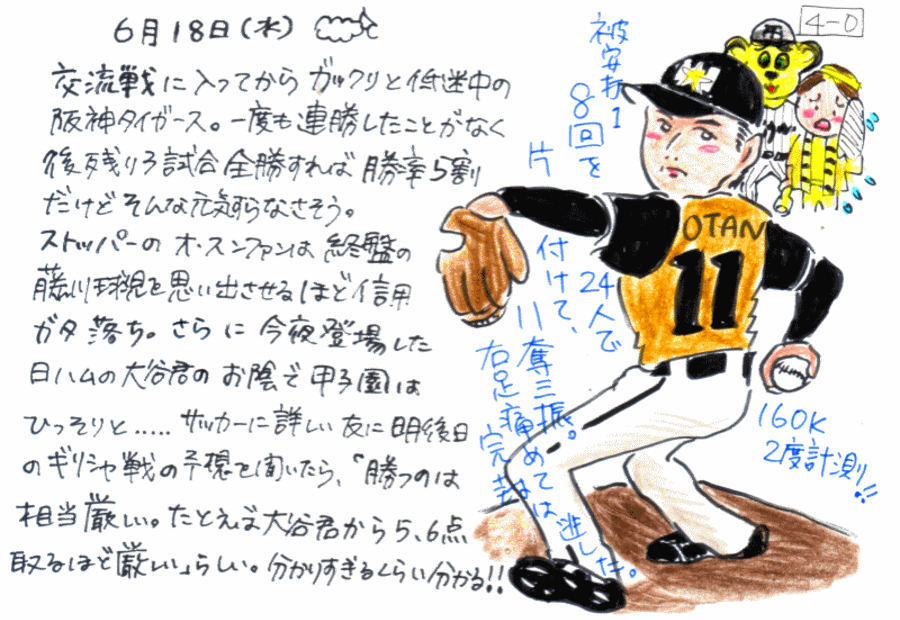 6月18日(水)
交流戦に入ってからガックリと低迷中の
阪神タイガース。一度も連勝したことがなく
後残り3試合全勝すれば勝率5割
だけどそんな元気すらなさそう。
ストッパーのオ・スンファンは終盤の
藤川球児を思い出させるほど信用
ガタ落ち。さらに今夜登場した
日ハムの大谷君のお陰で甲子園は
ひっそりと.....サッカーに詳しい友に明後日
のギリシャ戦の予想を聞いたら、「勝つのは
相当厳しい。たとえば大谷君から5、6点
取るほど厳しい」らしい。分かりすぎるくらい分かる!!
被安打1
8回を24人で
片付けて、11奪三振。
右足痛めて完封は逃した。
4-0
OTANI
11
160K
2度計測!!